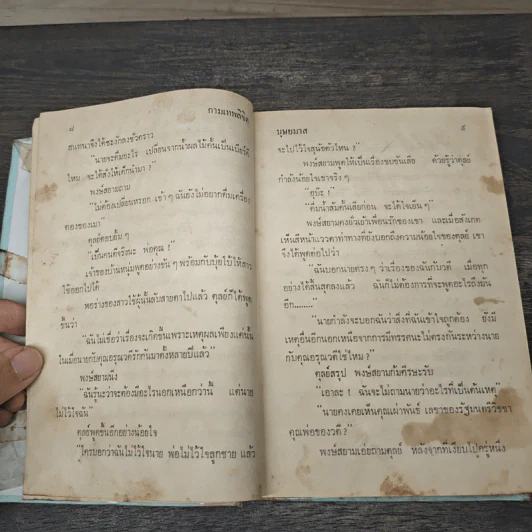 ๘ กามเทพลิขิต
สนทนาจึงได้ชะงักลงชั่วคราว
"นายจะดื่มอะไร เปลี่ยนจากน้ำผลไม้คั้นเป็นเบียร์ดี
ไหม จะได้สั่งให้เด็กนำมา ?"
พงษ์สยามถาม
"ไม่ต้องเปลี่ยนหรอก เช้า ๆ ฉันยังไม่อยากดื่มเครื่อง
ดองของเมา"
ดุลย์ตอบยิ้ม ๆ
"เป็นคนดีจริงนะ พ่อคุณ !"
เจ้าของบ้านหนุ่มพูดอย่างขัน ๆ พร้อมกับบุ้ยใบ้ให้สาว
ใช้ออกไปได้
พอร่างของสาวใช้ผู้นั้นลับสายตาไปแล้ว ดุลย์ก็ได้พูด
ขึ้นว่า
"ฉันไม่เชื่อว่าเรื่องจะเกิดขึ้นเพราะเหตุผลเพียงแค่นั้น
ในเมื่อนายกับคุณอรุณวดีรักกันมาตั้งหลายปีแล้ว"
พงษ์สยามนิ่ง
"ฉันรู้นะว่าจะต้องมีอะไรนอกเหนือกว่านี้ แต่นาย
ไม่ไว้ใจฉัน"
ดุลย์พูดขึ้นอีกอย่างน้อยใจ
"ใครบอกว่าฉันไม่ไว้ใจนาย พ่อไม่ไว้ใจลูกชาย แล้ว
บุษยมาส ๙
จะไปไว้ใจสุนัขตัวไหน ?"
พงษ์สยามพูดให้เป็นเรื่องขบขันเสีย ด้วยรู้ว่าดุลย์
กำลังน้อยใจเขาจริง ๆ
"อุบ๊ะ !"
"ดื่มน้ำส้มคั้นเสียก่อน จะได้ใจเย็น ๆ"
พงษ์สยามคงยั่วเย้าเพื่อนรักของเขา และเมื่อสังเกต
เห็นสีหน้าแววตาท่าทางที่ยังบอกถึงความน้อยใจของดุลย์ เขา
จึงได้พูดต่อไปว่า
"ฉันบอกนายตรง ๆ ว่าเรื่องของฉันกับวดี เมื่อทุก
อย่างได้สิ้นสุดลงแล้ว ฉันก็ไม่ต้องการที่จะพูดอะไรถึงมัน
อีก........"
"นายกำลังจะบอกฉันว่าสิ่งที่ฉันเข้าใจถูกต้อง ยังมี
เหตุอื่นอีกนอกเหนือจากการมีทรรศนะไม่ตรงกันระหว่างนาย
กับคุณอรุณวดีใช่ไหม ?"
ดุลย์สรุป พงษ์สยามก้มศีรษะรับ
"เอาละ ! ฉันจะไม่ถามนายว่าอะไรที่เป็นต้นเหตุ"
"นายคงเคยเห็นคุณเผ่าพันธ์ เลขาของรัฐมนตรีวิชชา
คุณพ่อของวดี ?"
พงษ์สยามเอ่ยถามดุลย์ หลังจากที่เงียบไปครู่หนึ่ง